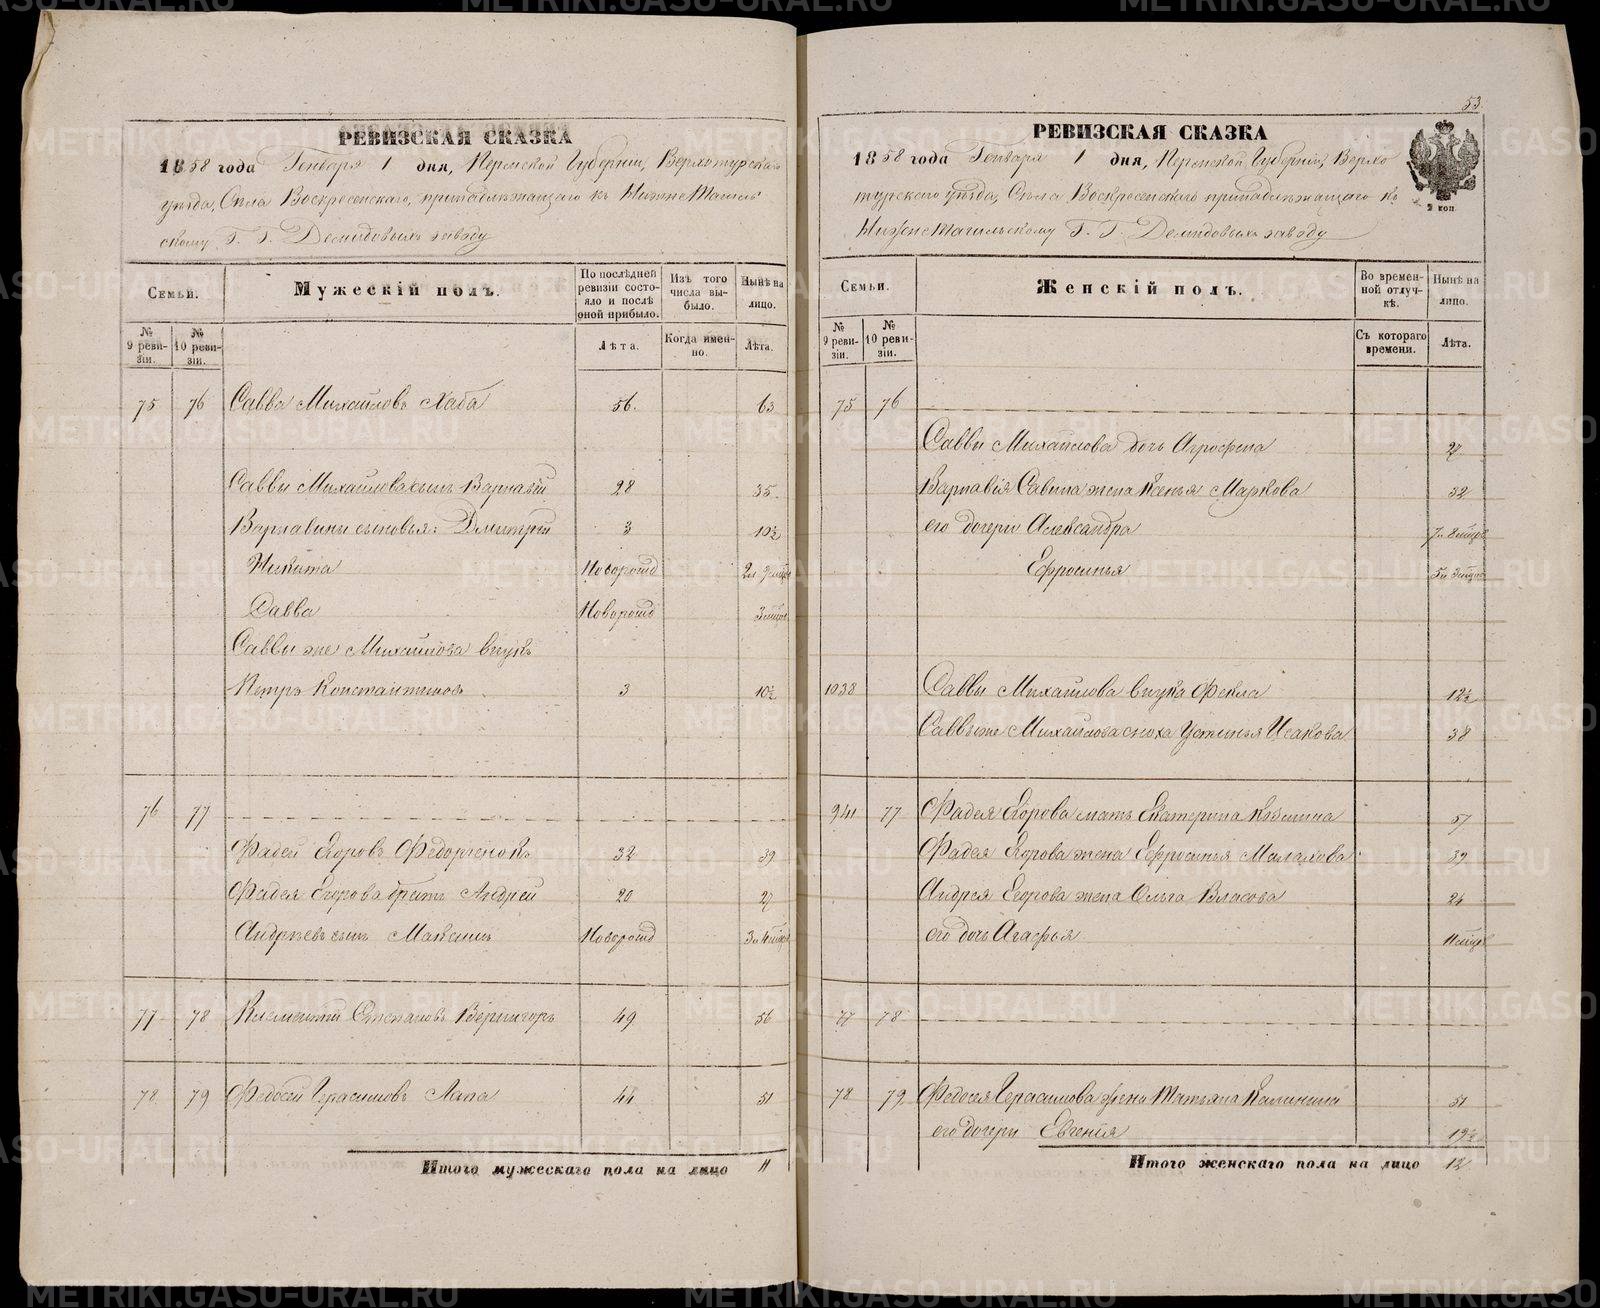 53.
РЕВИЗСКАЯ СКАЗКА
1858 года Генваря 1 дня, Пермской Губерніи, Верхотурскаго
уѣзда, Села Воскресенскаго, принадлежащаго къ НижнеТагиль
скому Г. Г. Демидовыхъ заводу
Семьи.
Мужескій полъ.
По послѣдней ревизіи состояло и послѣ оной прибыло.
Изъ того числа выбыло.
Нынѣ на лицо.
№ 9 ревизіи.
№ 10 ревизіи.
Лѣта.
Когда именно.
Лѣта.
75 76 Савва Михайловъ Хаба 56. 63
Саввы Михайлова сынъ Варнавій 28 35.
Варнавины сыновья: Дмитрій 3 10½
Никита Новорожд 2 л 9 мцов
Савва Новорожд 3 мцов
Саввы же Михайлова внукъ
Петръ Константиновъ 3 10½
76 77
Фадей Егоровъ Федорченокъ 32 39
Фадея Егорова братъ Андрей 20 27
Андреевъ сынъ Максимъ Новорожд 3 л 4 мцов
77 78 Климентій Степановъ Вернигоръ 49 56
78 79 Федосей Герасимовъ Лапа 44 51
Итого мужескаго пола на лицо 11
РЕВИЗСКАЯ СКАЗКА
1858 года Генваря 1 дня, Пермской Губерніи, Верхо
турскаго уѣзда, Села Воскресенскаго принадлежащаго къ
НижнеТагильскому Г. Г. Демидовыхъ заводу
2 коп
Семьи.
Женскій полъ.
Во временной отлучкѣ.
Нынѣ на лицо.
№ 9 ревизіи.
№ 10 ревизіи.
Съ котораго времени.
Лѣта.
75 76
Саввы Михайлова дочь Агрофина 27
Варнавія Савина жена Ксенья Маркова 32
его дочери Александра 7 л 8 мцов
Ефросинья 5 л 3 мцов
1038 Саввы Михайлова внука Фекла 12½
Саввы же Михайлова сноха Устинья Исакова 38
76 77
941 77 Фадея Егорова мать Екатерина Козмина 57
Фадея Егорова жена Ефросинья Малахова 39
Андрея Егорова жена Ольга Власова 24
его дочь Агафья 11 мцов
77 78
78 79 Федосея Герасимова жена Татьяна Калинина 51
его дочери Евгенія 19½
Итого женскаго пола на лицо 12
METRIKI.GASO-URAL.RU